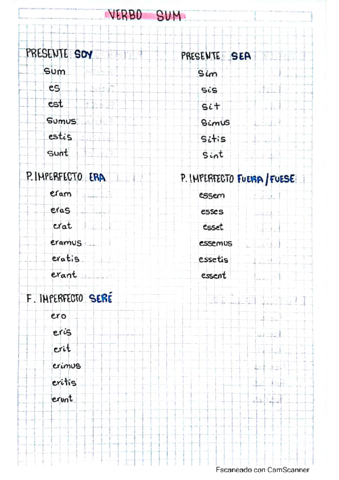 VERBO SUM
PRESENTE SOY
sum
es
est
sumus
estis
sunt
P. IMPERFECTO ERA
eram
eras
erat
eramus
eratis
erant
F. IMPERFECTO SERÉ
ero
eris
erit
erimus
eritis
erunt
PRESENTE SEA
sim
sis
sit
simus
sitis
sint
P. IMPERFECTO FUERA/FUESE
essem
esses
esset
essemus
essetis
essent
Escaneado con CamScanner